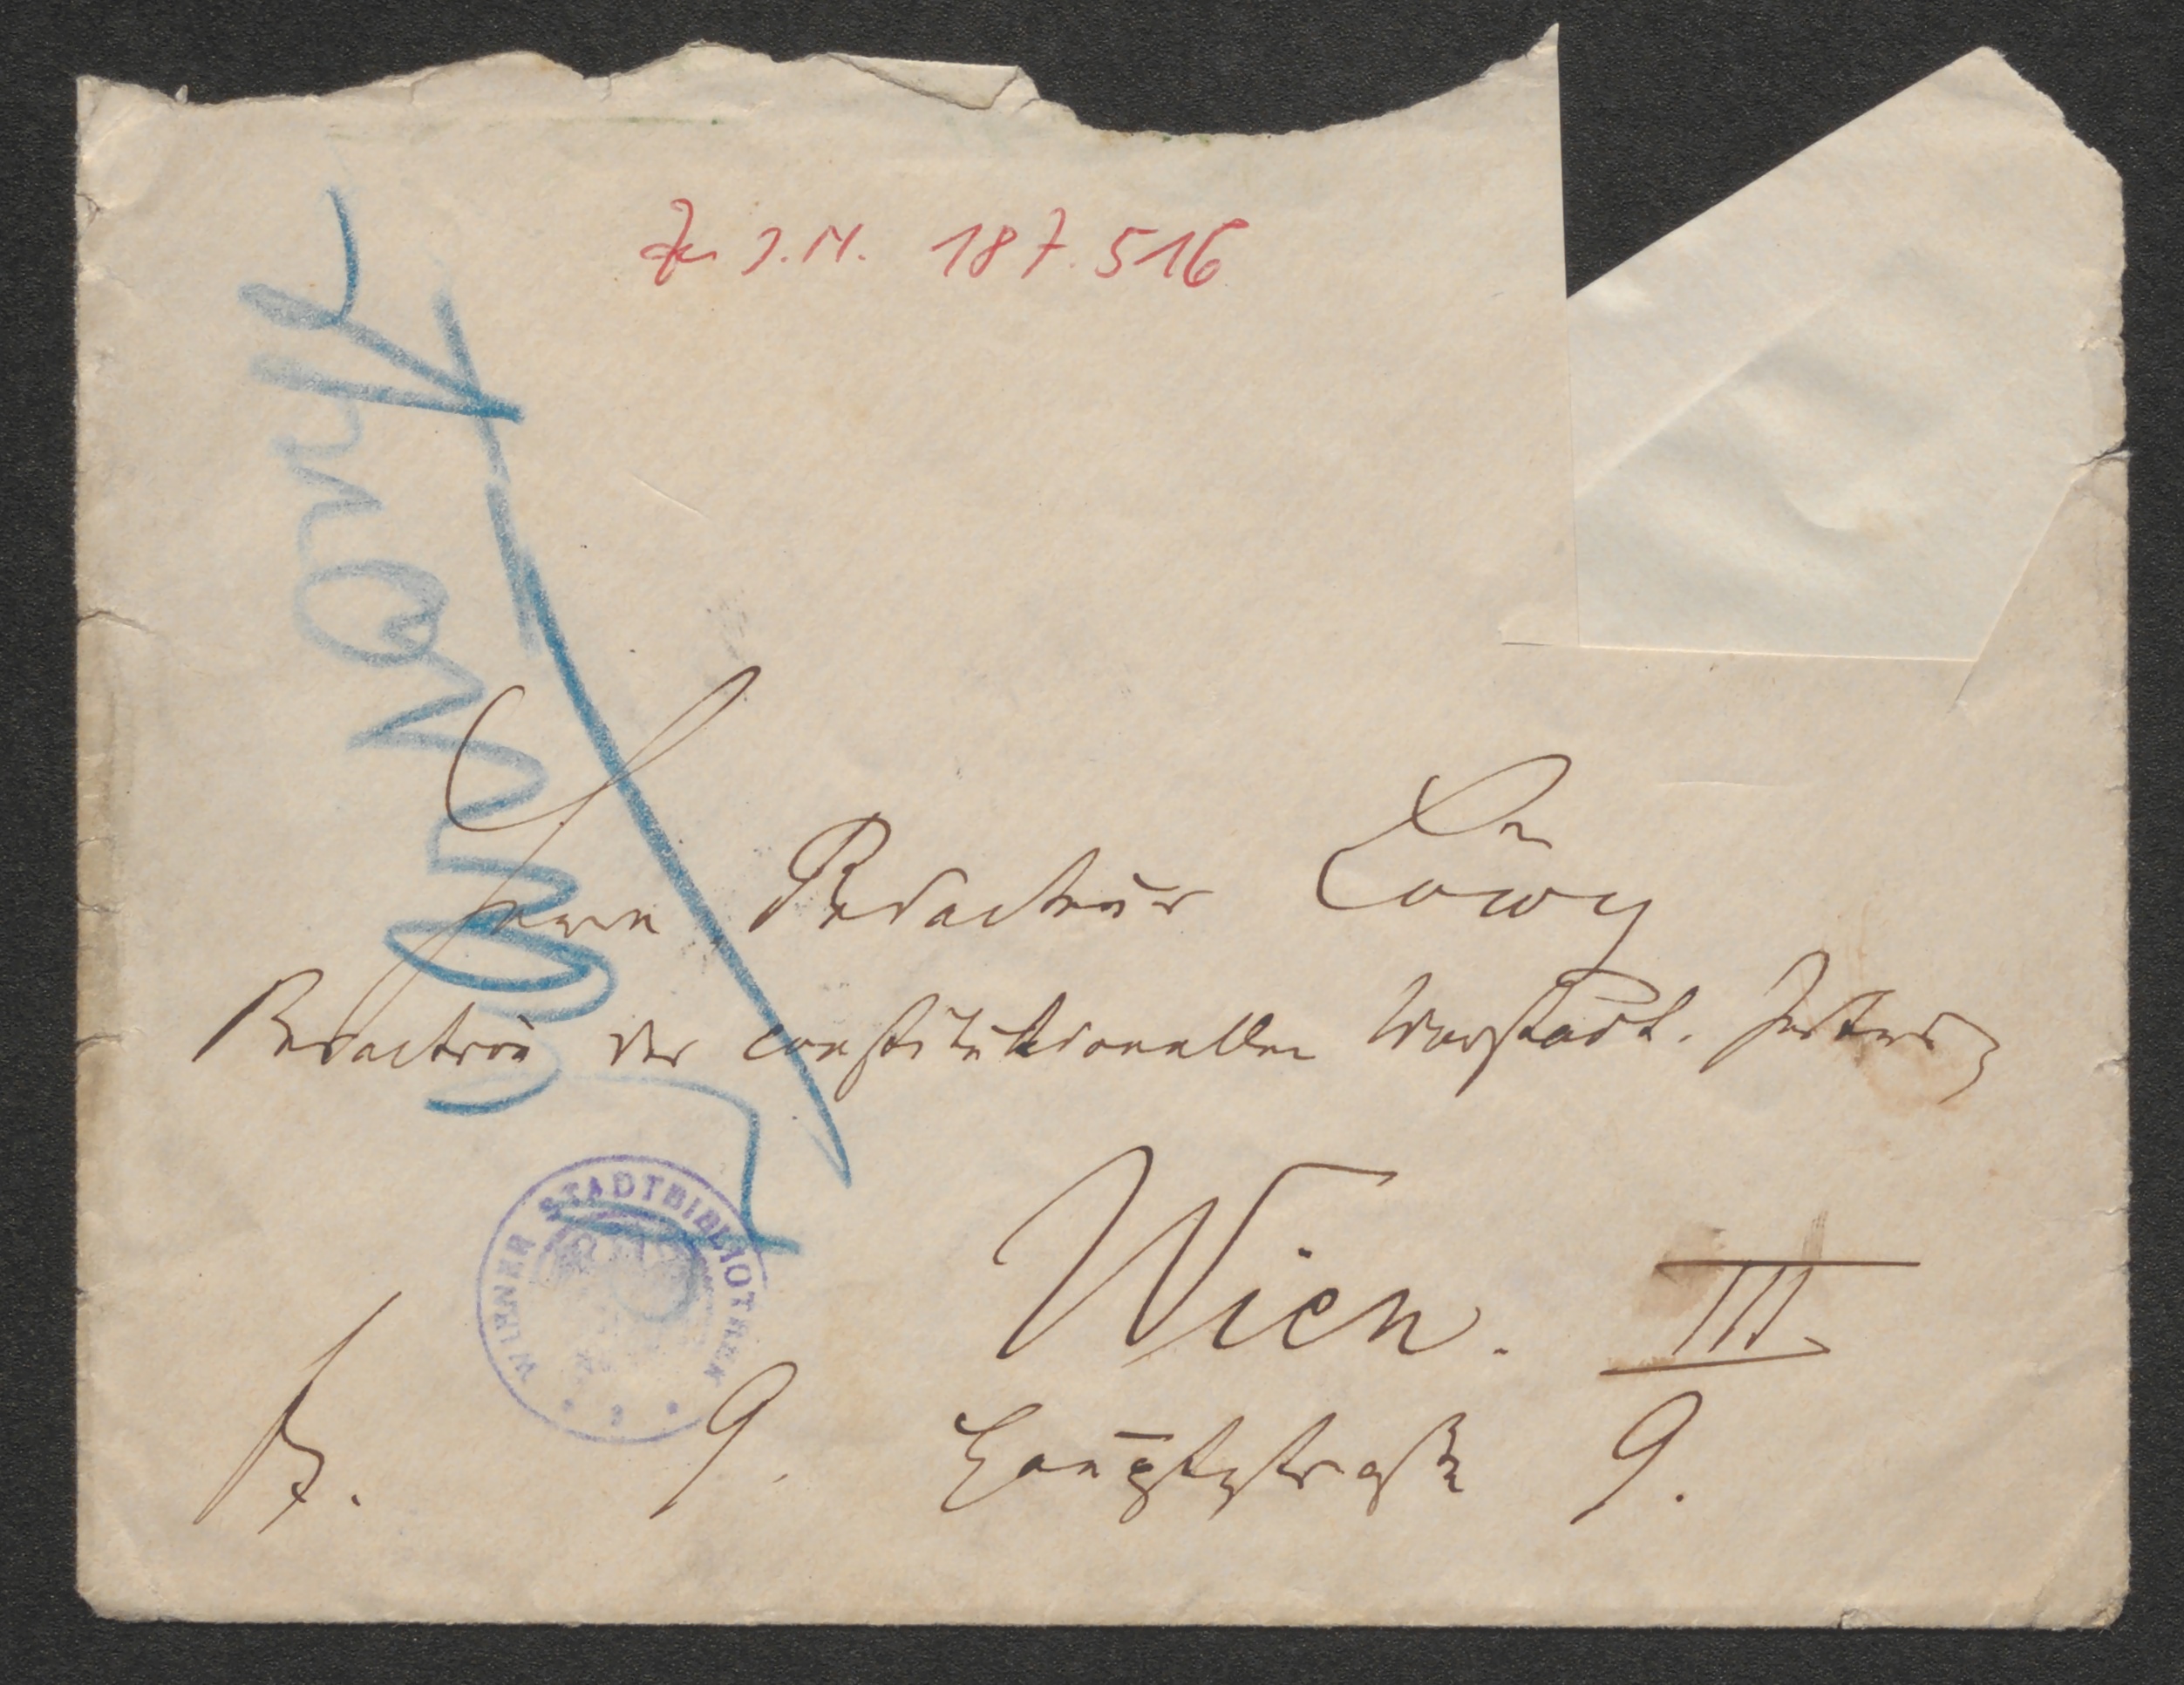 Zu I.N. 187.516
Herrn Redacteur Löwy
Redaction der constitutionellen Vorstadt.
Wien. III
Fr. 9. Hauptstraße 9.
WIENER STADTBIBLIOTHEK